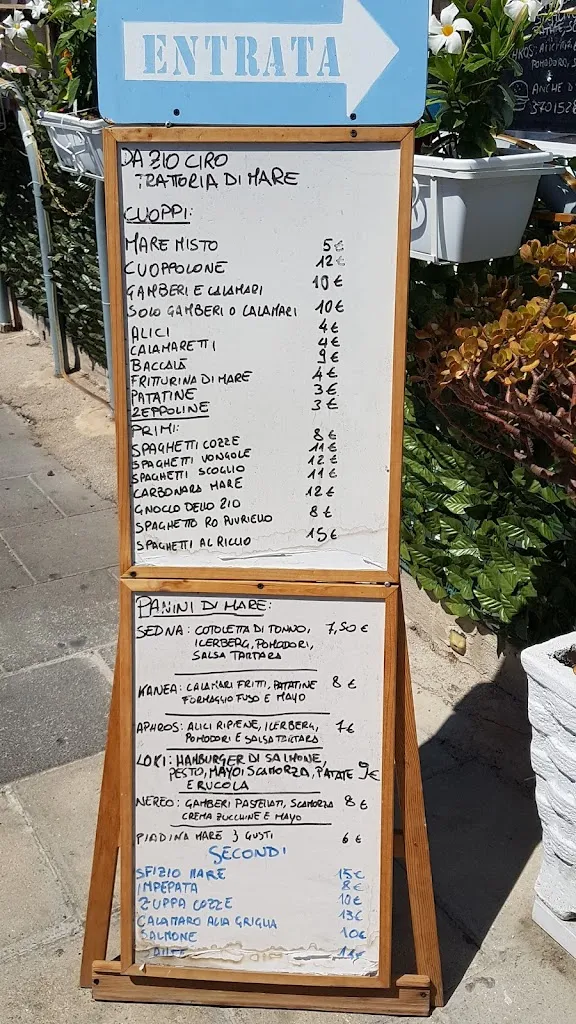 ENTRATA
DA ZIO CIRO
TRATTORIA DI MARE
CUOPPI:
MARE MISTO 5€
CUOPPOLONE 12€
GAMBERI E CALAMARI 10€
SOLO GAMBERI O CALAMARI 10€
ALICI 4€
CALAMARETTI 4€
BACCALÀ 9€
FRITTURINA DI MARE 4€
PATATINE 3€
ZEPPOLINE 3€
PRIMI:
SPAGHETTI COZZE 8€
SPAGHETTI VONGOLE 11€
SPAGHETTI SCOGLIO 12€
CARBONARA MARE 11€
GNOCCO DELLO ZIO 12€
SPAGHETTO RO PUVRIELLO 8€
SPAGHETTI AL RICCIO 15€
PANINI DI MARE:
SEDNA: COTOLETTA DI TONNO, 7,50€
ICERBERG, POMODORI,
SALSA TARTARA
KANEA: CALAMARI FRITTI, PATATINE 8€
FORMAGGIO FUSO E MAYO
APHROS: ALICI RIPIENE, ICERBERG, 7€
POMODORI E SALSA TARTARA
LOKI: HAMBURGER DI SALMONE,
PESTO, MAYO, SCAMORZA, PATATE 9€
E RUCOLA
NEREO: GAMBERI PASTELLATI, SCAMORZA 8€
CREMA ZUCCHINE E MAYO
PIADINA MARE 3 GUSTI 6€
SECONDI
SFIZIO MARE 15€
IMPEPATA 8€
ZUPPA COZZE 10€
CALAMARO ALLA GRIGLIA 13€
SALMONE 10€